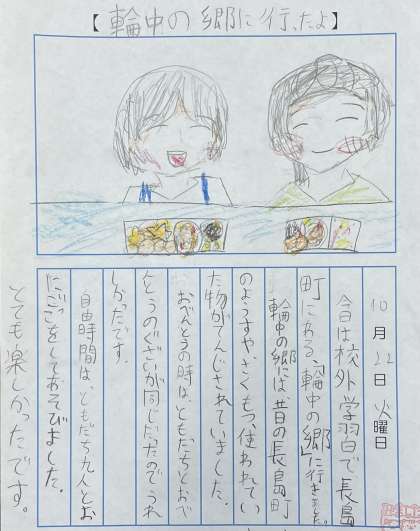 【輪中の郷に行ったよ】
10月22日火曜日
今日は校外学習で長島
町にある、「輪中の郷」に行きました。
輪中の郷には昔の長島町
のようすやさくもつ、使われてい
た物がてんじされていました。
おべんとうの時は、ともだちとおべ
んとうのぐざいが同じだったので、うれ
しかったです。
自由時間は、ともだち九人とお
にごっこをしてあそびました。
とても楽しかったです。